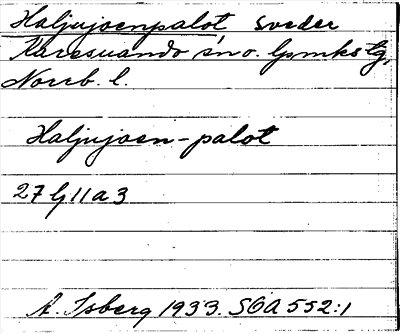 Haljujoenpalot sveder
Karesuando sn o. lpmks lg,
Norrb. l.
Haljujoen-palot
27 lj 11 a 3
A. Isberg 1933. SOA 552:1